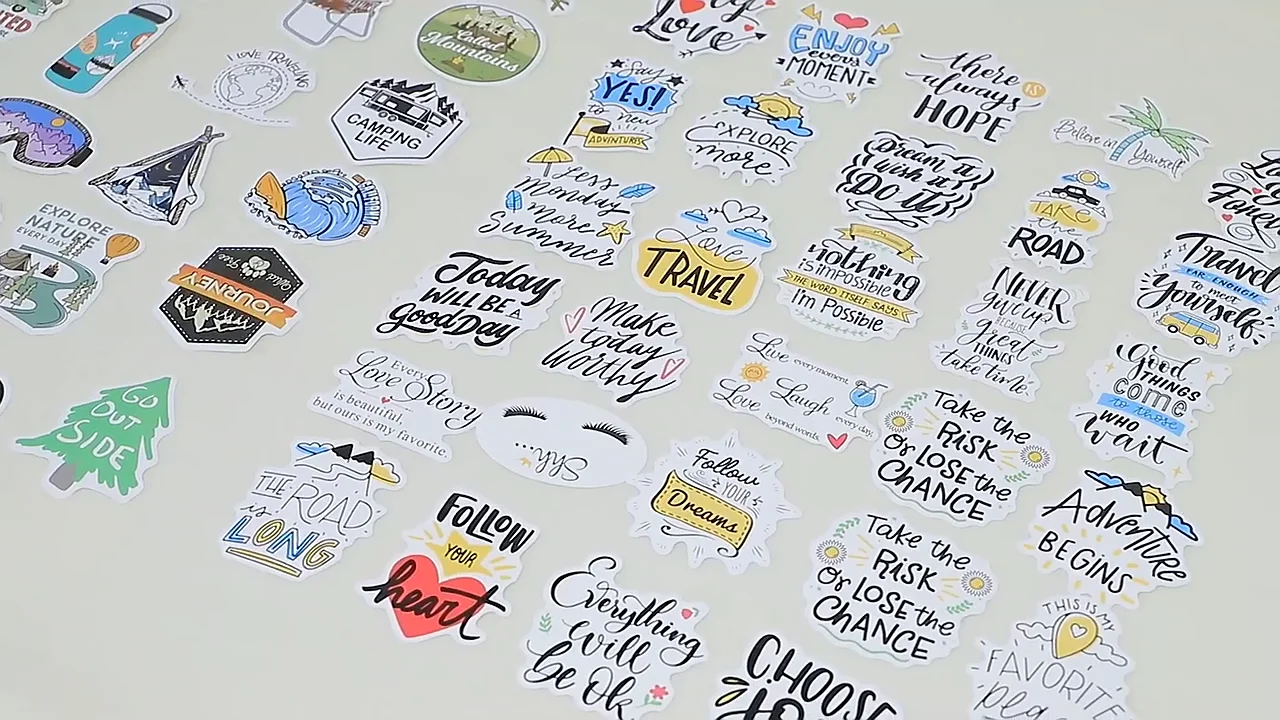 Called
Mountains
I LOVE TRAVELING
CAMPING
LIFE
EXPLORE
NATURE
EVERY DAY
JOURNEY
GO
OUT
SIDE
Love
ENJOY
every
MOMENT
there
IS
always
HOPE
Say
YES!
to new
ADVENTURES
EXPLORE
more
Believe in
Yourself
Dream it
Wish it
Do it
Less
Monday
More
Summer
Love
TRAVEL
nothing
is impossible
THE WORD ITSELF SAYS
I'm Possible
TAKE
the
ROAD
Travel
FAR ENOUGH
to meet
Yourself
NEVER
give up
BECAUSE
Great
THINGS
take time
Today
WILL BE A
Good Day
Make
today
Worthy
Good
THINGS
come
to those
WHO
wait
Every
Love Story
is beautiful,
but ours is my favorite.
Live every moment,
Laugh every day,
Love beyond words.
Take the
RISK
Or LOSE the
CHANCE
THE ROAD
is
LONG
Follow
YOUR
Dreams
Adventure
BEGINS
FOLLOW
YOUR
heart
Take the
RISK
Or LOSE the
CHANCE
Everything
will
be Ok
THIS IS MY
FAVORITE
CHOOSE